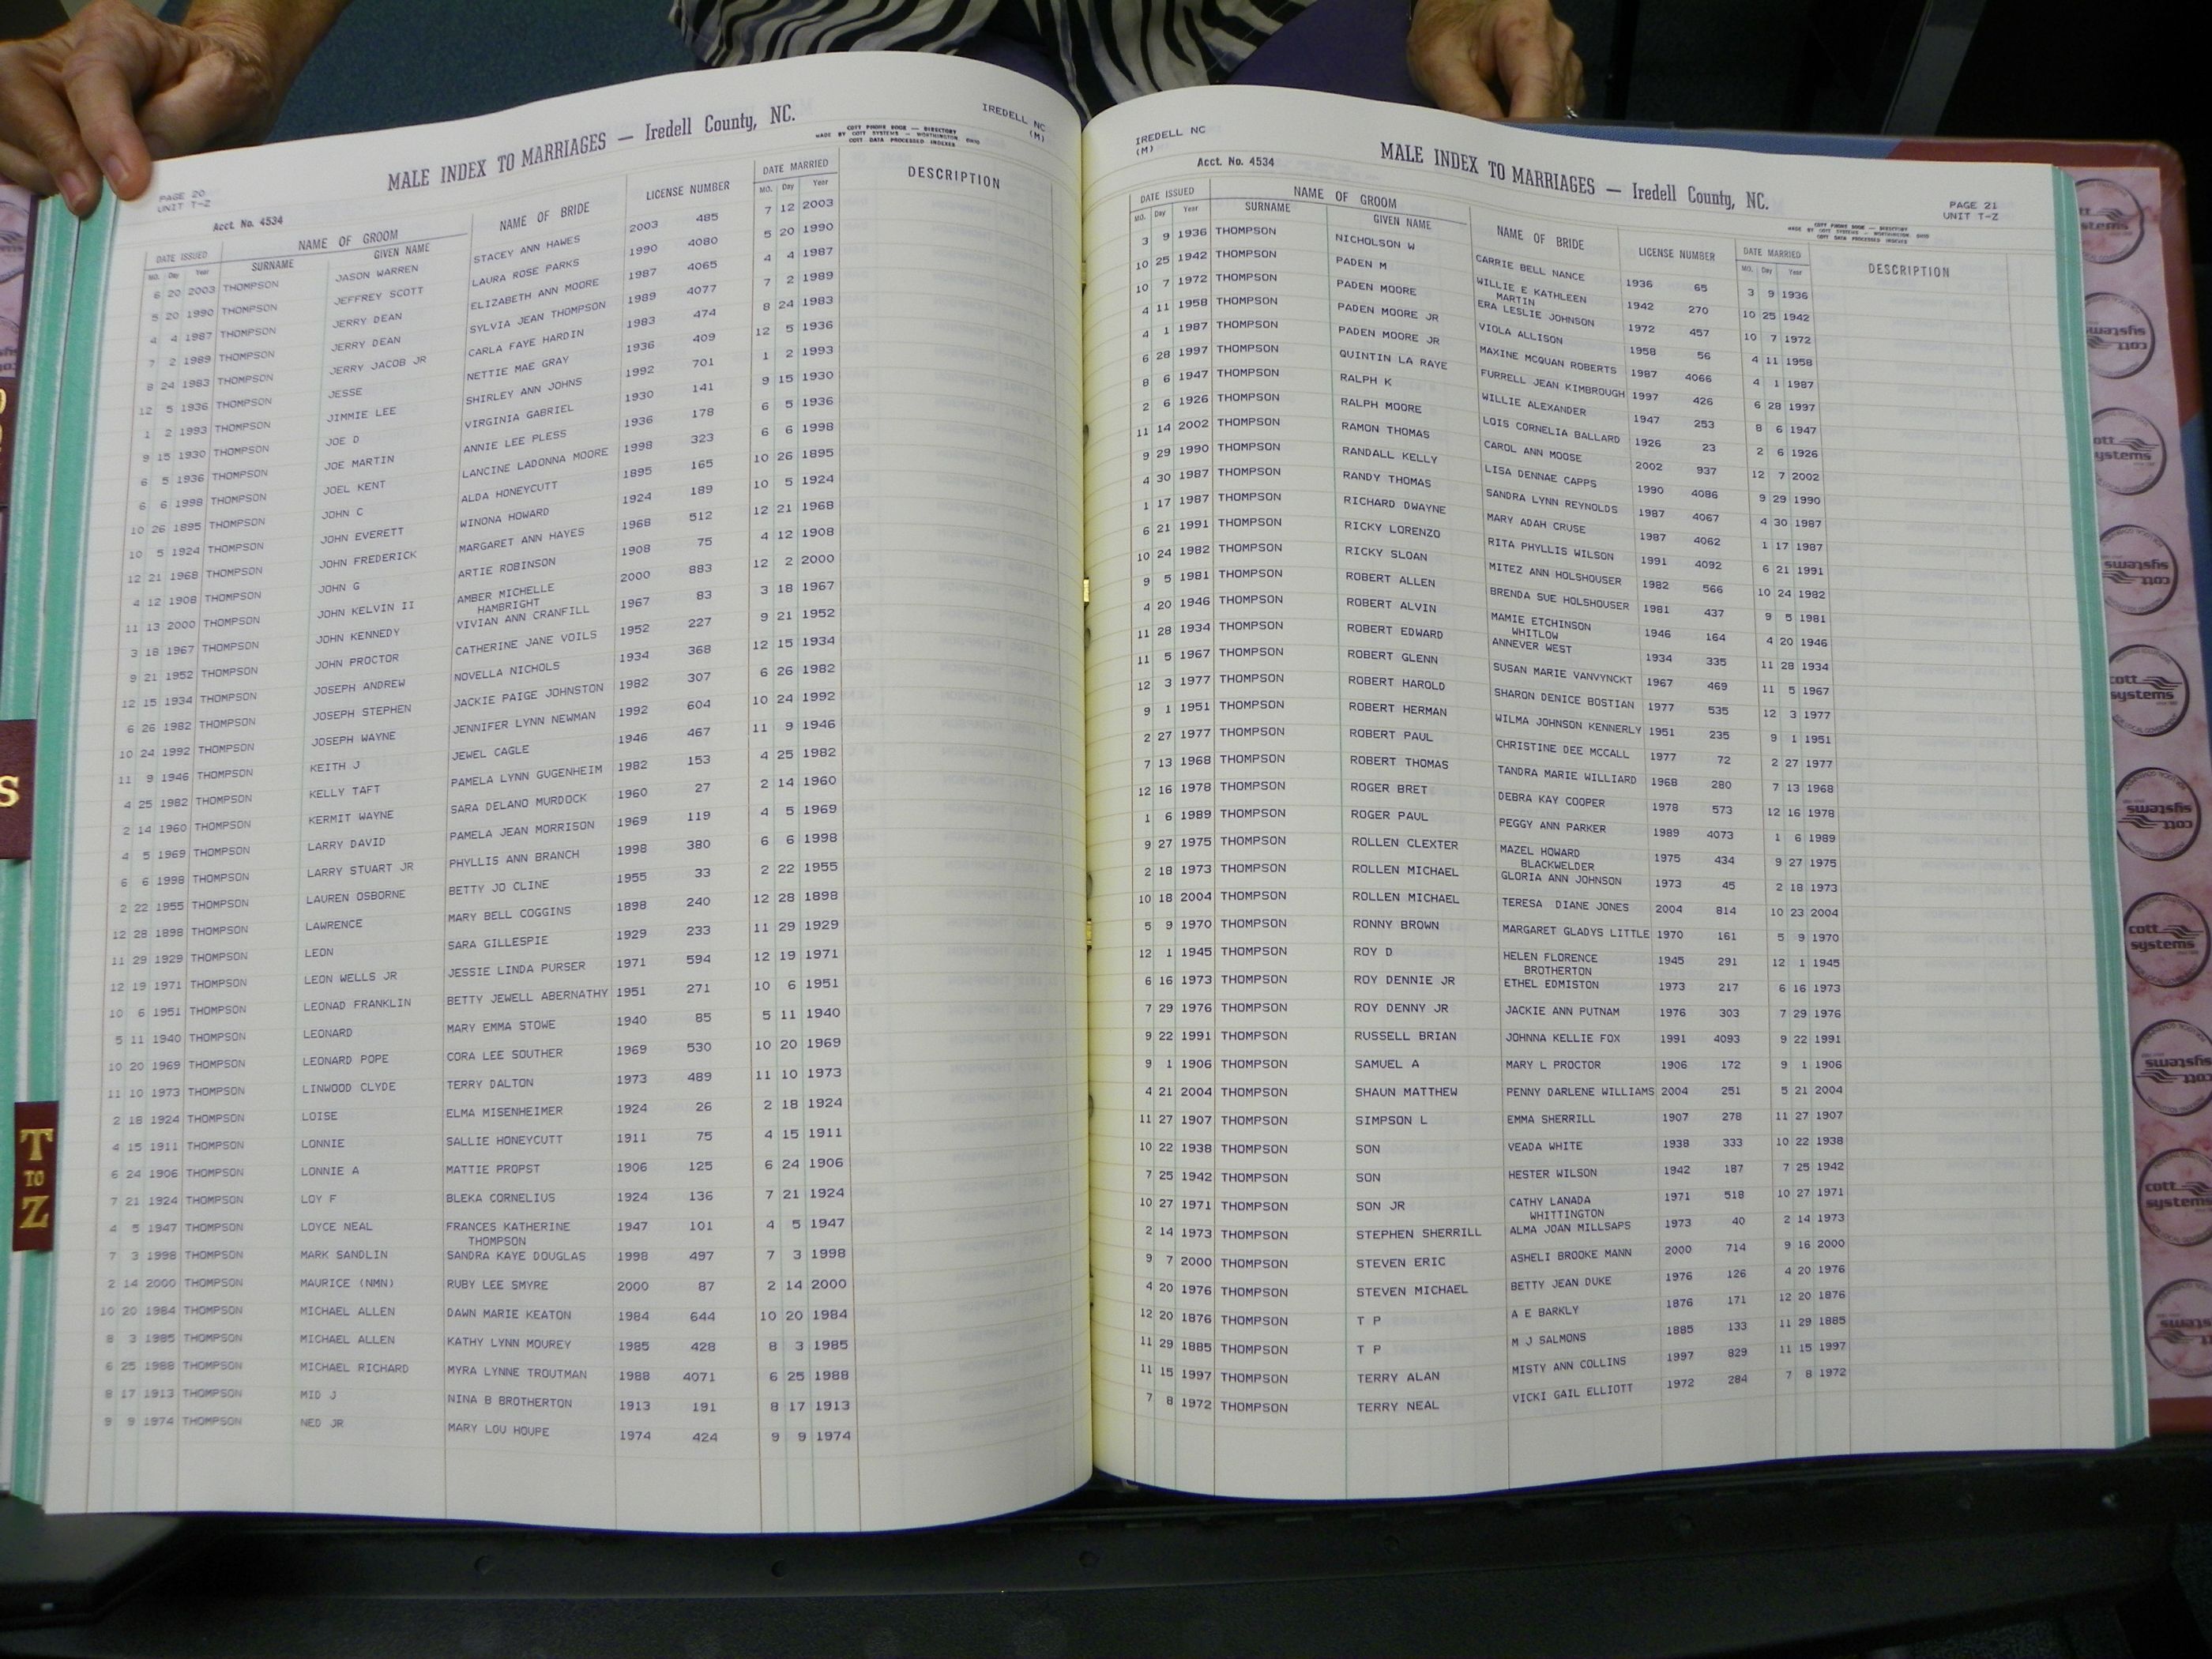 PAGE 20
UNIT T-Z
MALE INDEX TO MARRIAGES — Iredell County, NC.
COTT PHONE BOOK — DIRECTORY
MADE BY COTT SYSTEMS — WORTHINGTON OHIO
COTT DATA PROCESSED INDEXES
IREDELL NC
(M)
Acct. No. 4534
DATE ISSUED NAME OF GROOM NAME OF BRIDE LICENSE NUMBER DATE MARRIED DESCRIPTION
MO. Day Year SURNAME GIVEN NAME MO. Day Year
6 20 2003 THOMPSON JASON WARREN STACEY ANN HAWES 2003 485 7 12 2003
5 20 1990 THOMPSON JEFFREY SCOTT LAURA ROSE PARKS 1990 4080 5 20 1990
4 4 1987 THOMPSON JERRY DEAN ELIZABETH ANN MOORE 1987 4065 4 4 1987
7 2 1989 THOMPSON JERRY DEAN SYLVIA JEAN THOMPSON 1989 4077 7 2 1989
8 24 1983 THOMPSON JERRY JACOB JR CARLA FAYE HARDIN 1983 474 8 24 1983
12 5 1936 THOMPSON JESSE NETTIE MAE GRAY 1936 409 12 5 1936
1 2 1993 THOMPSON JIMMIE LEE SHIRLEY ANN JOHNS 1992 701 1 2 1993
9 15 1930 THOMPSON JOE D VIRGINIA GABRIEL 1930 141 9 15 1930
6 5 1936 THOMPSON JOE MARTIN ANNIE LEE PLESS 1936 178 6 5 1936
6 6 1998 THOMPSON JOEL KENT LANCINE LADONNA MOORE 1998 323 6 6 1998
10 26 1895 THOMPSON JOHN C ALDA HONEYCUTT 1895 165 10 26 1895
10 5 1924 THOMPSON JOHN EVERETT WINONA HOWARD 1924 189 10 5 1924
12 21 1968 THOMPSON JOHN FREDERICK MARGARET ANN HAYES 1968 512 12 21 1968
4 12 1908 THOMPSON JOHN G ARTIE ROBINSON 1908 75 4 12 1908
11 13 2000 THOMPSON JOHN KELVIN II AMBER MICHELLE 2000 883 12 2 2000
HAMBRIGHT
3 18 1967 THOMPSON JOHN KENNEDY VIVIAN ANN CRANFILL 1967 83 3 18 1967
9 21 1952 THOMPSON JOHN PROCTOR CATHERINE JANE VOILS 1952 227 9 21 1952
12 15 1934 THOMPSON JOSEPH ANDREW NOVELLA NICHOLS 1934 368 12 15 1934
6 26 1982 THOMPSON JOSEPH STEPHEN JACKIE PAIGE JOHNSTON 1982 307 6 26 1982
10 24 1992 THOMPSON JOSEPH WAYNE JENNIFER LYNN NEWMAN 1992 604 10 24 1992
11 9 1946 THOMPSON KEITH J JEWEL CAGLE 1946 467 11 9 1946
4 25 1982 THOMPSON KELLY TAFT PAMELA LYNN GUGENHEIM 1982 153 4 25 1982
2 14 1960 THOMPSON KERMIT WAYNE SARA DELANO MURDOCK 1960 27 2 14 1960
4 5 1969 THOMPSON LARRY DAVID PAMELA JEAN MORRISON 1969 119 4 5 1969
6 6 1998 THOMPSON LARRY STUART JR PHYLLIS ANN BRANCH 1998 380 6 6 1998
2 22 1955 THOMPSON LAUREN OSBORNE BETTY JO CLINE 1955 33 2 22 1955
12 28 1898 THOMPSON LAWRENCE MARY BELL COGGINS 1898 240 12 28 1898
11 29 1929 THOMPSON LEON SARA GILLESPIE 1929 233 11 29 1929
12 19 1971 THOMPSON LEON WELLS JR JESSIE LINDA PURSER 1971 594 12 19 1971
10 6 1951 THOMPSON LEONAD FRANKLIN BETTY JEWELL ABERNATHY 1951 271 10 6 1951
5 11 1940 THOMPSON LEONARD MARY EMMA STOWE 1940 85 5 11 1940
10 20 1969 THOMPSON LEONARD POPE CORA LEE SOUTHER 1969 530 10 20 1969
11 10 1973 THOMPSON LINWOOD CLYDE TERRY DALTON 1973 489 11 10 1973
2 18 1924 THOMPSON LOISE ELMA MISENHEIMER 1924 26 2 18 1924
4 15 1911 THOMPSON LONNIE SALLIE HONEYCUTT 1911 75 4 15 1911
6 24 1906 THOMPSON LONNIE A MATTIE PROPST 1906 125 6 24 1906
7 21 1924 THOMPSON LOY F BLEKA CORNELIUS 1924 136 7 21 1924
4 5 1947 THOMPSON LOYCE NEAL FRANCES KATHERINE 1947 101 4 5 1947
THOMPSON
7 3 1998 THOMPSON MARK SANDLIN SANDRA KAYE DOUGLAS 1998 497 7 3 1998
2 14 2000 THOMPSON MAURICE (NMN) RUBY LEE SMYRE 2000 87 2 14 2000
10 20 1984 THOMPSON MICHAEL ALLEN DAWN MARIE KEATON 1984 644 10 20 1984
8 3 1985 THOMPSON MICHAEL ALLEN KATHY LYNN MOUREY 1985 428 8 3 1985
6 25 1988 THOMPSON MICHAEL RICHARD MYRA LYNNE TROUTMAN 1988 4071 6 25 1988
8 17 1913 THOMPSON MID J NINA B BROTHERTON 1913 191 8 17 1913
9 9 1974 THOMPSON NED JR MARY LOU HOUPE 1974 424 9 9 1974
IREDELL NC
(M)
Acct. No. 4534
MALE INDEX TO MARRIAGES — Iredell County, NC.
COTT PHONE BOOK — DIRECTORY
MADE BY COTT SYSTEMS — WORTHINGTON OHIO
COTT DATA PROCESSED INDEXES
PAGE 21
UNIT T-Z
DATE ISSUED NAME OF GROOM NAME OF BRIDE LICENSE NUMBER DATE MARRIED DESCRIPTION
MO. Day Year SURNAME GIVEN NAME MO. Day Year
3 9 1936 THOMPSON NICHOLSON W CARRIE BELL NANCE 1936 65 3 9 1936
10 25 1942 THOMPSON PADEN M WILLIE E KATHLEEN 1942 270 10 25 1942
MARTIN
10 7 1972 THOMPSON PADEN MOORE ERA LESLIE JOHNSON 1972 457 10 7 1972
4 11 1958 THOMPSON PADEN MOORE JR VIOLA ALLISON 1958 56 4 11 1958
4 1 1987 THOMPSON PADEN MOORE JR MAXINE MCQUAN ROBERTS 1987 4066 4 1 1987
6 28 1997 THOMPSON QUINTIN LA RAYE FURRELL JEAN KIMBROUGH 1997 426 6 28 1997
8 6 1947 THOMPSON RALPH K WILLIE ALEXANDER 1947 253 8 6 1947
2 6 1926 THOMPSON RALPH MOORE LOIS CORNELIA BALLARD 1926 23 2 6 1926
11 14 2002 THOMPSON RAMON THOMAS CAROL ANN MOOSE 2002 937 12 7 2002
9 29 1990 THOMPSON RANDALL KELLY LISA DENNAE CAPPS 1990 4086 9 29 1990
4 30 1987 THOMPSON RANDY THOMAS SANDRA LYNN REYNOLDS 1987 4067 4 30 1987
1 17 1987 THOMPSON RICHARD DWAYNE MARY ADAH CRUSE 1987 4062 1 17 1987
6 21 1991 THOMPSON RICKY LORENZO RITA PHYLLIS WILSON 1991 4092 6 21 1991
10 24 1982 THOMPSON RICKY SLOAN MITEZ ANN HOLSHOUSER 1982 566 10 24 1982
9 5 1981 THOMPSON ROBERT ALLEN BRENDA SUE HOLSHOUSER 1981 437 9 5 1981
4 20 1946 THOMPSON ROBERT ALVIN MAMIE ETCHINSON 1946 164 4 20 1946
WHITLOW
11 28 1934 THOMPSON ROBERT EDWARD ANNEVER WEST 1934 335 11 28 1934
11 5 1967 THOMPSON ROBERT GLENN SUSAN MARIE VANVYNCKT 1967 469 11 5 1967
12 3 1977 THOMPSON ROBERT HAROLD SHARON DENICE BOSTIAN 1977 535 12 3 1977
9 1 1951 THOMPSON ROBERT HERMAN WILMA JOHNSON KENNERLY 1951 235 9 1 1951
2 27 1977 THOMPSON ROBERT PAUL CHRISTINE DEE MCCALL 1977 72 2 27 1977
7 13 1968 THOMPSON ROBERT THOMAS TANDRA MARIE WILLIARD 1968 280 7 13 1968
12 16 1978 THOMPSON ROGER BRET DEBRA KAY COOPER 1978 573 12 16 1978
1 6 1989 THOMPSON ROGER PAUL PEGGY ANN PARKER 1989 4073 1 6 1989
9 27 1975 THOMPSON ROLLEN CLEXTER MAZEL HOWARD 1975 434 9 27 1975
BLACKWELDER
2 18 1973 THOMPSON ROLLEN MICHAEL GLORIA ANN JOHNSON 1973 45 2 18 1973
10 18 2004 THOMPSON ROLLEN MICHAEL TERESA DIANE JONES 2004 814 10 23 2004
5 9 1970 THOMPSON RONNY BROWN MARGARET GLADYS LITTLE 1970 161 5 9 1970
12 1 1945 THOMPSON ROY D HELEN FLORENCE 1945 291 12 1 1945
BROTHERTON
6 16 1973 THOMPSON ROY DENNIE JR ETHEL EDMISTON 1973 217 6 16 1973
7 29 1976 THOMPSON ROY DENNY JR JACKIE ANN PUTNAM 1976 303 7 29 1976
9 22 1991 THOMPSON RUSSELL BRIAN JOHNNA KELLIE FOX 1991 4093 9 22 1991
9 1 1906 THOMPSON SAMUEL A MARY L PROCTOR 1906 172 9 1 1906
4 21 2004 THOMPSON SHAUN MATTHEW PENNY DARLENE WILLIAMS 2004 251 5 21 2004
11 27 1907 THOMPSON SIMPSON L EMMA SHERRILL 1907 278 11 27 1907
10 22 1938 THOMPSON SON VEADA WHITE 1938 333 10 22 1938
7 25 1942 THOMPSON SON HESTER WILSON 1942 187 7 25 1942
10 27 1971 THOMPSON SON JR CATHY LANADA 1971 518 10 27 1971
WHITTINGTON
2 14 1973 THOMPSON STEPHEN SHERRILL ALMA JOAN MILLSAPS 1973 40 2 14 1973
9 7 2000 THOMPSON STEVEN ERIC ASHELI BROOKE MANN 2000 714 9 16 2000
4 20 1976 THOMPSON STEVEN MICHAEL BETTY JEAN DUKE 1976 126 4 20 1976
12 20 1876 THOMPSON T P A E BARKLY 1876 171 12 20 1876
11 29 1885 THOMPSON T P M J SALMONS 1885 133 11 29 1885
11 15 1997 THOMPSON TERRY ALAN MISTY ANN COLLINS 1997 829 11 15 1997
7 8 1972 THOMPSON TERRY NEAL VICKI GAIL ELLIOTT 1972 284 7 8 1972
S
T
TO
Z
cott
systems